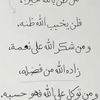 من ظن بالله خيرا،
فلن يخيب الله ظنه.
و من شكر الله على نعمة،
زاده الله من فضله.
و من توكل على الله فهو حسبه.